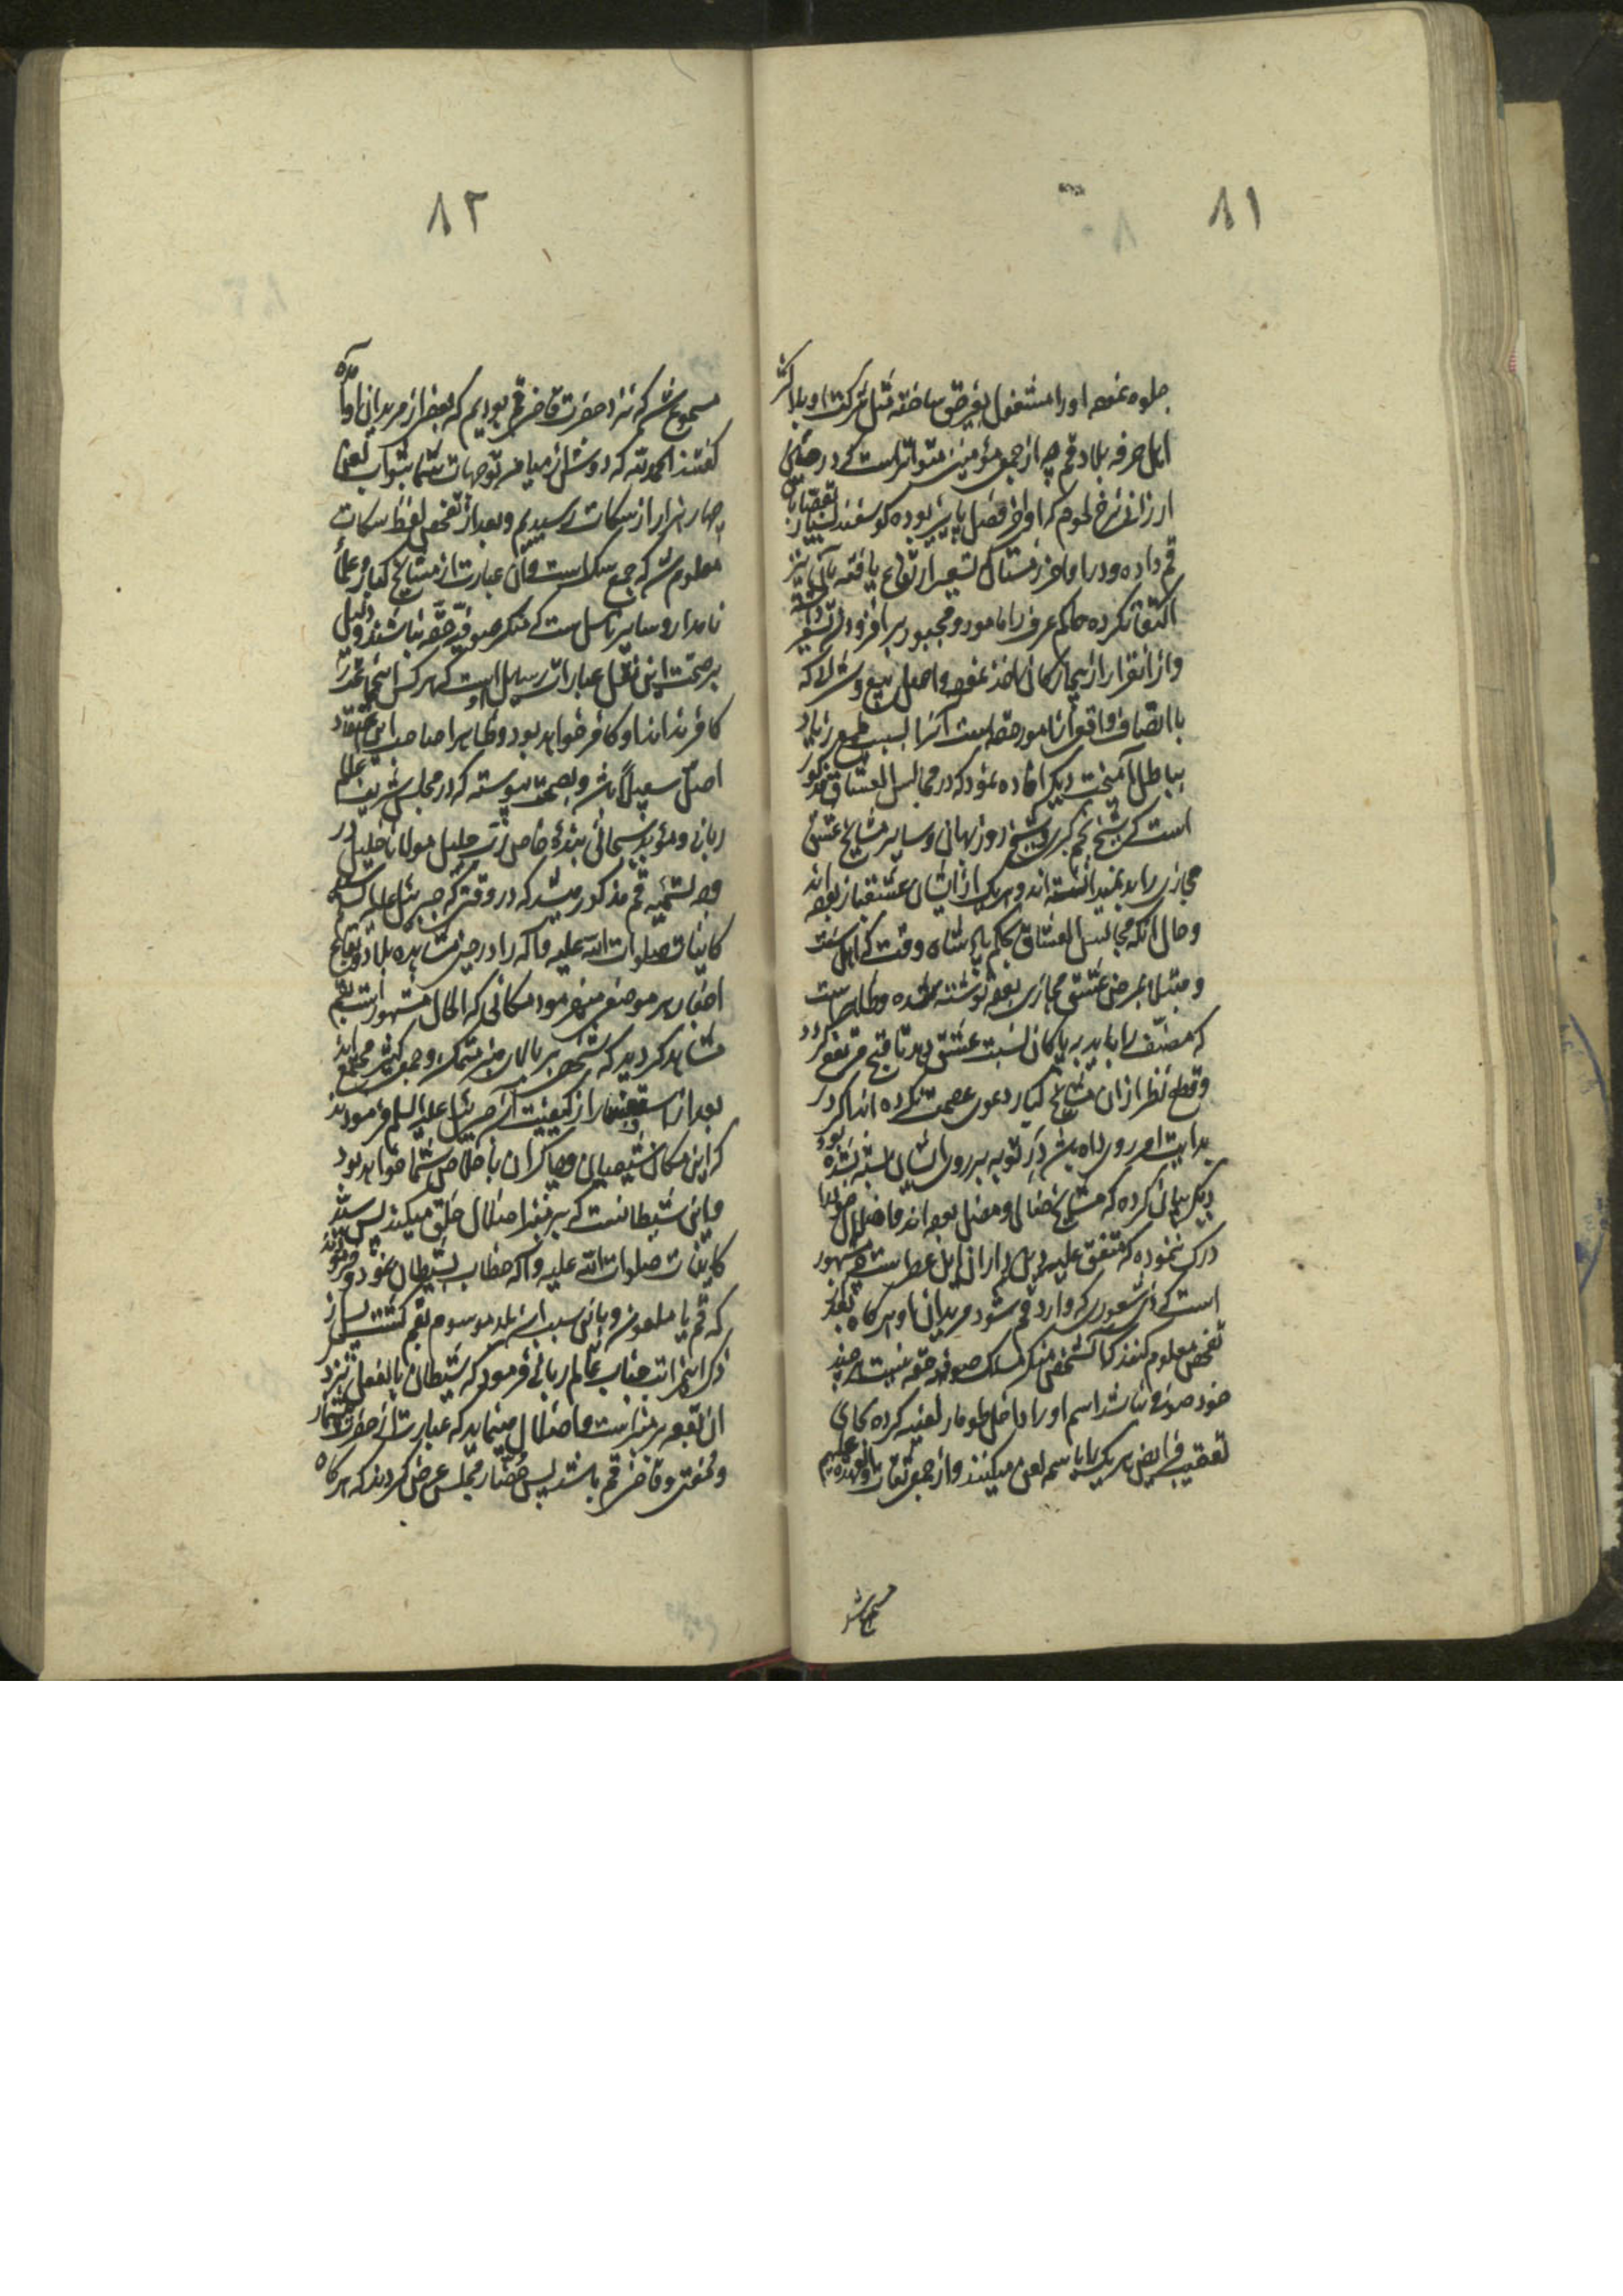 ۸۱
جلوه نموده او را مشغول بغیر حق ساخته مثل شرکت او با اکثر
اهل حرفه بلاد قم چه از جمعی مؤمنین متواتر است که در حین
ارزانی نرخ لحوم که اواخر فصل پاییز بوده گوسفند بسیار بقصابان
قم داده و در اواخر زمستان که تسعیر ارتفاع یافته بآن نیز
اکتفا نکرده حاکم عرف را مامور و مجبور بر افزودن تسعیر
و از آنقرار از بیچارگان اخذ نموده و اصل بیع و شرا که
با اتصاف واقع از امور حقه است آنرا بسبب طمع زیاد
بباطل آمیخت دیگر افاده نمود که در مجالس العشاق مذکور
است که شیخ نجم کبری و شیخ روزبهان و سایر مشایخ عشق
مجازی را بد نمیدانسته اند و هر یک از ایشان عشقباز بوده اند
و حال آنکه مجالس العشاق بحکم پادشاه وقت که اهل سنت
و مبتلا بمرض عشق مجازی بوده نوشته شده و ظاهر است
که مصنف را باید به پاکان نسبت عشق دهد تا قبح مرتفع گردد
و قطع نظر از آن مشایخ کبار دعوی عصمت نکرده اند اگر در
بدایت امر روی داده باشد در توبه بر روی ایشان بسته نشده بود
دیگر بیان کرده که مشایخ ضال و مضل بوده اند و اضلال خود را
درک ننموده که متفق علیه
است که ذی شعوری که وارد قم شود مریدان او هر گاه بعد از
تفحص معلوم کنند که آنشخص منکر مسلک صوفیه حقه نیست هر چند
خود صوفی نباشد اسم او را داخل طومار لعنیه کرده بجای
تعقیب فرایض هر یک را باسم لعن میکنند و از جمعی ثقات
مسموع شد
۸۲
مسموع شد که نزد حضرت قاضی قم بودیم که بعضی از مریدان او آمده
گفتند الحمد لله که دوشک از میامن توجهات شما بثواب لعن
چهار هزار از سکات رسیدیم و بعد از تفحص لفظ سکات
معلوم شد که جمع سگ است و آن عبارت از مشایخ کبار و علمای
نامدار و سایر ناس است که منکر صوفیه حقه نباشند و دلیل
بر صحت این نقل عبارات رساله است که هر کس
کافر نداند او کافر خواهد بود و ظاهرا صاحب این اعتقاد
اصل سعید باشد و بصحت پیوسته که در مجلس شریف عالم
ربانی و مؤید سبحانی بنده خاص رب جلیل مولانا خلیل در
وجه تسمیه قم مذکور میشد که در وقتی که جبرئیل علیه السلام سید
کاینات صلوات الله علیه و آله را در حین مشاهده بلاد و بقاع
اخبار هر موضع میفرمود مکانی که الحال مشهور است بقم
مشاهد گردید که شخصی بر بالای منبر متمکن و جمعی کثیر مجتمع اند
بعد از استفسار از کیفیت آن جبرئیل علیه السلام فرمودند
که این مکان شیعیان و چاکران با خلاص شما خواهد بود
و این شیطانست که بر منبر اضلال خلق میکند پس سید
کاینات صلوات الله علیه و آله خطاب بشیطان نمود و فرمودند
که قم یا ملعون و باین سبب این بلد موسوم بقم گشت پس از
ذکر این مراتب جناب عالم ربانی فرمود که شیطان بالفعل نیز در
آن بقعه بر منبر است و اضلال مینماید که عبارت از حضرت
و مفتی و قاضی قم باشد پس حضار مجلس عرض کردند که هر گاه